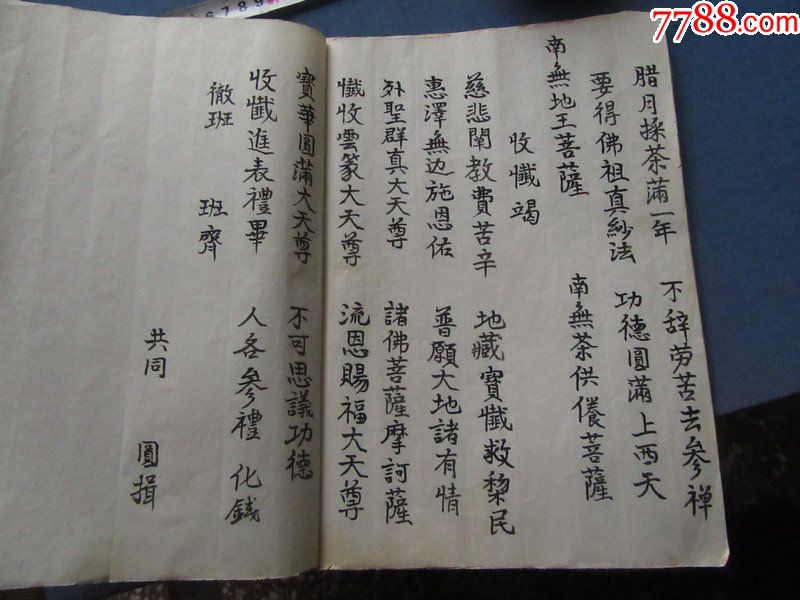 7788.com
6 7 8 9
腊月揉茶滿一年 不辞劳苦去参禅
要得佛祖真紗法 功德圓滿上西天
南無地王菩薩 南無茶供養菩薩
收懺竭
慈悲闡教費苦辛 地藏寶懺救黎民
惠澤無边施恩佑 普願大地諸有情
外聖群真大天尊 諸佛菩薩摩訶薩
懺收雲篆大天尊 流恩賜福大天尊
寶華圓滿大天尊 不可思議功德
收懺進表禮畢 人各参禮 化銭
徹班 班齊
共同 圓揖